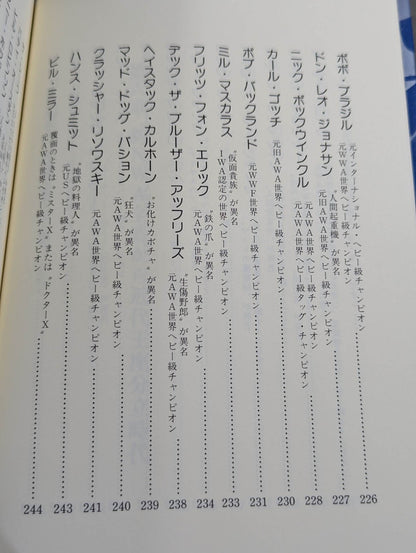 ボボ・ブラジル
元インターナショナル・ヘビー級チャンピオン
元WWA世界ヘビー級チャンピオン……226
ドン・レオ・ジョナサン
"人間起重機"が異名
元旧AWA世界ヘビー級チャンピオン……227
ニック・ボックウインクル
元AWA世界ヘビー級チャンピオン
元AWA世界ヘビー級タッグ・チャンピオン……228
カール・ゴッチ
元旧AWA世界ヘビー級チャンピオン……230
ボブ・バックランド
元WWF世界ヘビー級チャンピオン……231
ミル・マスカラス
"仮面貴族"が異名
IWA認定の世界ヘビー級チャンピオン……233
フリッツ・フォン・エリック
"鉄の爪"が異名
元AWA世界ヘビー級チャンピオン……234
デック・ザ・ブルーザー・アッフリーズ
"生傷野郎"が異名
元AWA世界ヘビー級チャンピオン……238
ヘイスタック・カルホーン
"お化けカボチャ"が異名……239
マッド・ドッグ・バション
"狂犬"が異名
元AWA世界ヘビー級チャンピオン……240
クラッシャー・リソワスキー
元AWA世界ヘビー級チャンピオン……241
ハンス・シュミット
"地獄の料理人"が異名
元USヘビー級チャンピオン……243
ビル・ミラー
覆面のときは"ミスターX"または"ドクターX"
元AWA世界ヘビー級チャンピオン……244